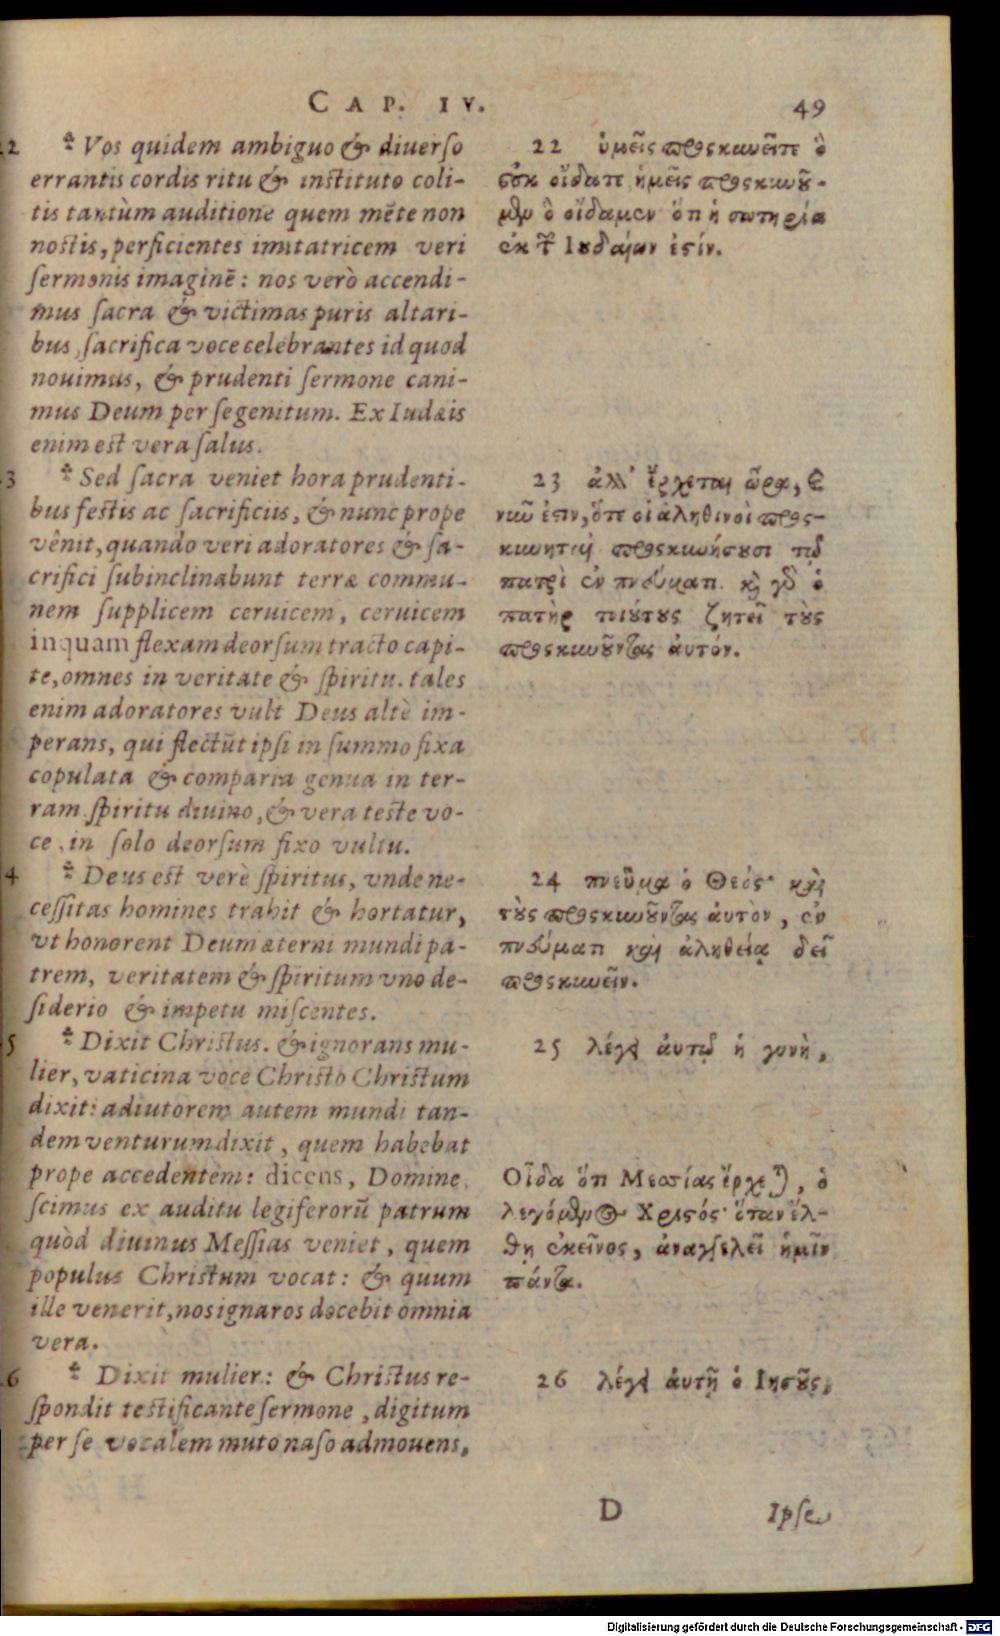 CAP. IV. 49
22 Vos quidem ambiguo & diuerſo
errantis cordis ritu & inſtituto coli-
tis tantùm auditione quem mēte non
noſtis, perficientes imitatricem veri
ſermonis imaginē: nos verò accendi-
mus ſacra & victimas puris altari-
bus, ſacrifica voce celebrantes id quod
nouimus, & prudenti ſermone cani-
mus Deum per ſe genitum. Ex Iudæis
enim eſt vera ſalus.
3 Sed ſacra veniet hora prudenti-
bus feſtis ac ſacrificiis, & nunc prope
vênit, quando veri adoratores & ſa-
crifici ſubinclinabunt terræ commu-
nem ſupplicem ceruicem, ceruicem
inquam flexam deorſum tracto capi-
te, omnes in veritate & ſpiritu. tales
enim adoratores vult Deus altè im-
perans, qui flectūt ipſi in ſummo fixa
copulata & comparia genua in ter-
ram ſpiritu diuino, & vera teſte vo-
ce, in ſolo deorſum fixo vultu.
4 Deus eſt verè ſpiritus, vnde ne-
ceſſitas homines trahit & hortatur,
vt honorent Deum æterni mundi pa-
trem, veritatem & ſpiritum vno de-
ſiderio & impetu miſcentes.
5 Dixit Chriſtus. & ignorans mu-
lier, vaticina voce Chriſto Chriſtum
dixit: adiutorem autem mundi tan-
dem venturum dixit, quem habebat
prope accedentem: dicens, Domine,
ſcimus ex auditu legiferorū patrum
quòd diuinus Meſſias veniet, quem
populus Chriſtum vocat: & quum
ille venerit, nos ignaros docebit omnia
vera.
6 Dixit mulier: & Chriſtus re-
ſpondit teſtificante ſermone, digitum
per ſe vocalem muto naſo admouens,
22 ὑμεῖς προςκυνεῖτε ὃ
οὐκ οἴδατε, ἡμεῖς προςκυνοῦ-
μθμ ὃ οἴδαμεν ὅτι ἡ σωτηρία
ἐκ τῶν Ιουδαίων ἐστίν.
23 ἀλλ' ἔρχεται ὥρα, καὶ
νῦν ἐστιν, ὅτε οἱ ἀληθινοὶ προς-
κυνηταὶ προςκυνήσουσι τῷ
πατρὶ ἐν πνεύματι. καὶ γὸ ὁ
πατὴρ τοιούτους ζητεῖ τοὺς
προςκυνοῦντας ἀυτόν.
24 πνεῦμα ὁ Θεός· καὶ
τοὺς προςκυνοῦντας ἀυτὸν, ἐν
πνεύματι καὶ ἀληθείᾳ δεῖ
προςκυνεῖν.
25 λέγει ἀυτῷ ἡ γυνὴ,
Οἶδα ὅτι Μεσσίας ἔρχεται, ὁ
λεγόμενος Χριστός· ὅταν ἔλ-
θῃ ἐκεῖνος, ἀναγγελεῖ ἡμῖν
πάντα.
26 λέγει ἀυτῇ ὁ Ιησοῦς,
D Ipſe
Digitalisierung gefördert durch die Deutsche Forschungsgemeinschaft - DFG